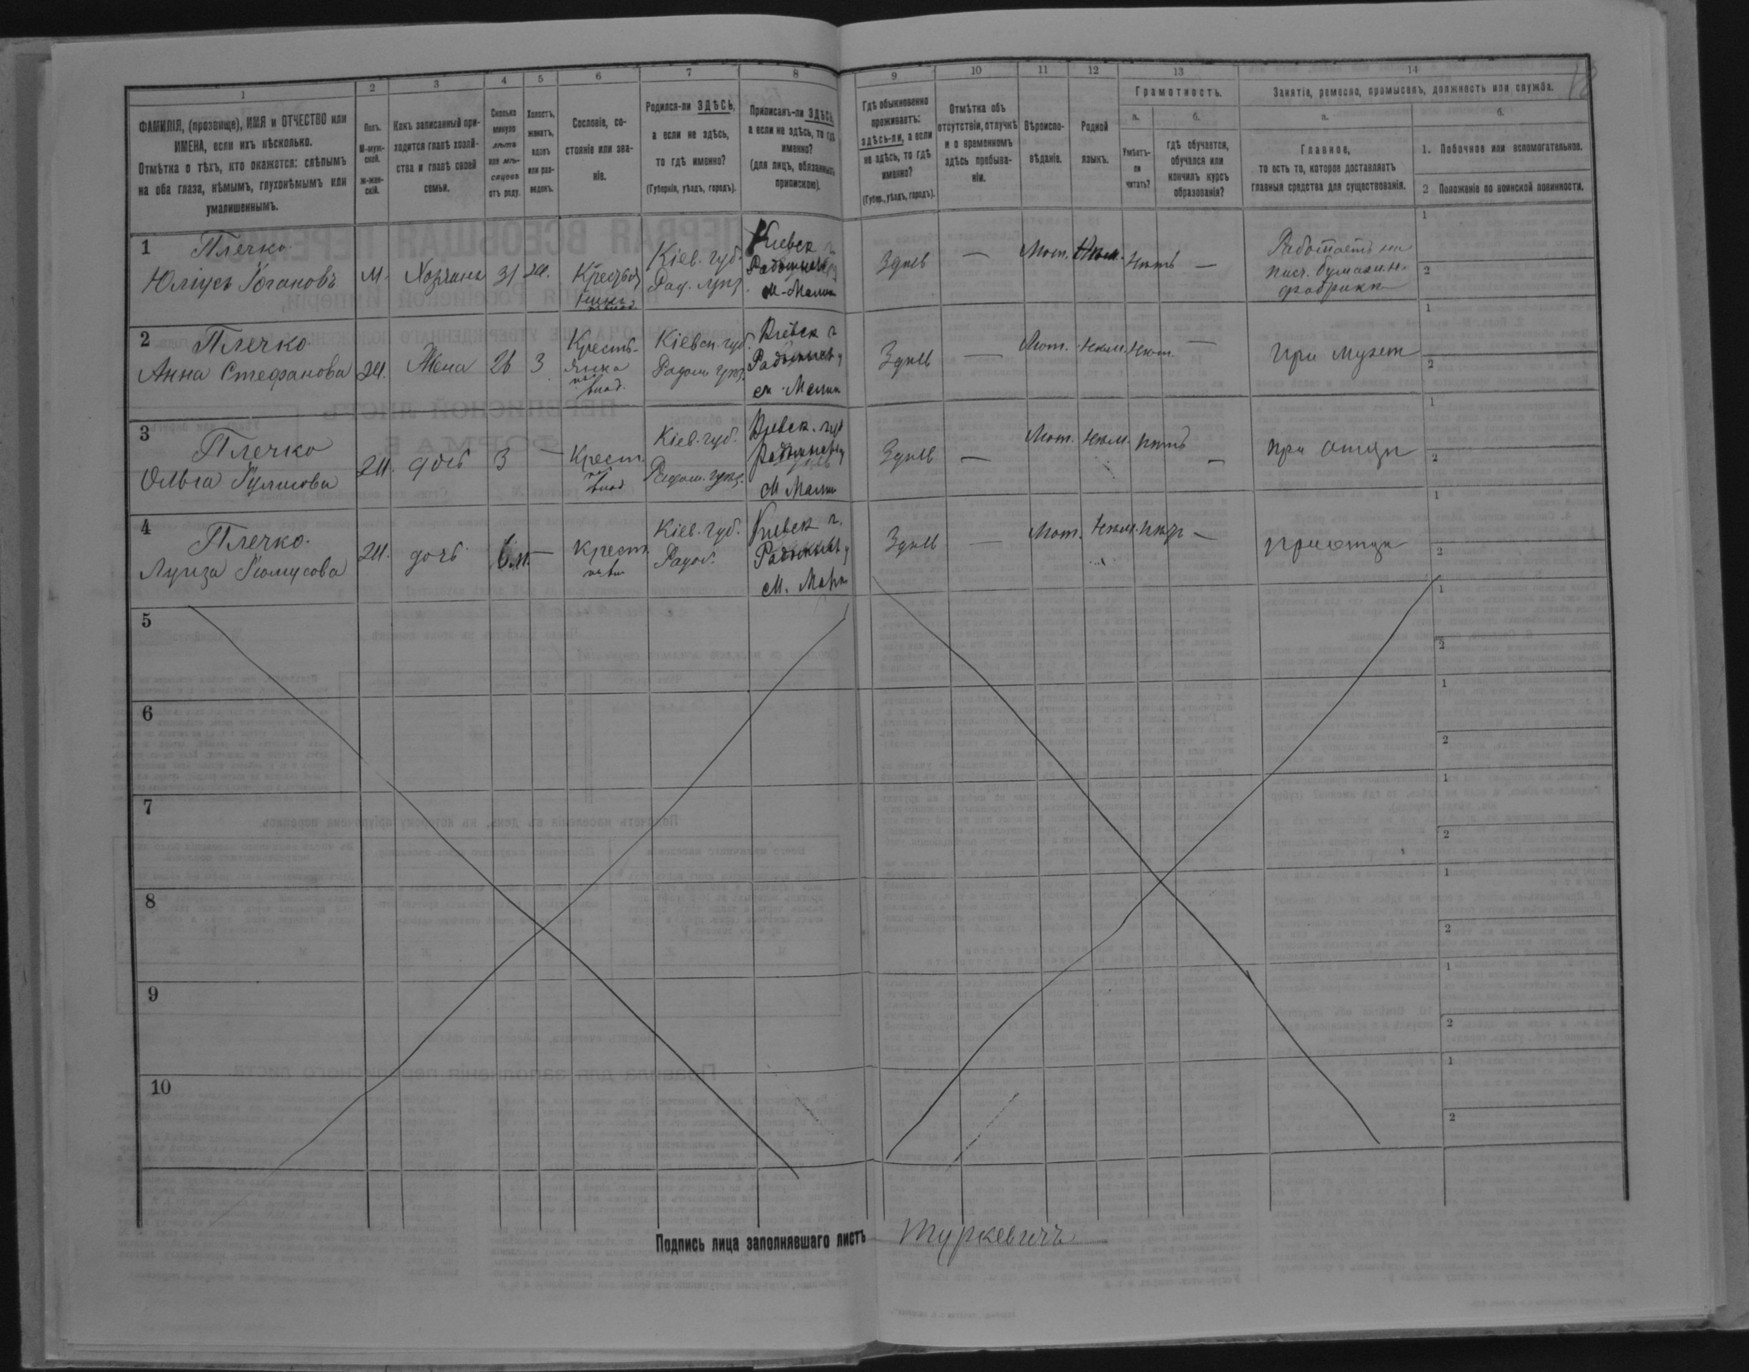 1 2 3 4 5 6 7 8 9 10 11 12 13 14
ФАМИЛІЯ, (прозвище), ИМЯ и ОТЧЕСТВО или
ИМЕНА, если ихъ нѣсколько.
Отмѣтка о тѣхъ, кто окажется: слѣпымъ
на оба глаза, нѣмымъ, глухонѣмымъ или
умалишеннымъ.
Полъ.
М-муж-
ской.
Ж-жен-
скій.
Какъ записанный при-
ходится главѣ хозяй-
ства и главѣ своей
семьи.
Сколько
минуло
лѣтъ
или мѣ-
сяцевъ
отъ роду.
Холостъ,
женатъ,
вдовъ
или раз-
веденъ.
Сословіе, со-
стояніе или зва-
ніе.
Родился-ли ЗДѢСЬ,
а если не здѣсь,
то гдѣ именно?
(Губернія, уѣздъ, городъ).
Приписанъ-ли ЗДѢСЬ,
а если не здѣсь, то гдѣ
именно?
(для лицъ, обязанныхъ
припискою).
Гдѣ обыкновенно
проживаетъ:
здѣсь-ли, а если
не здѣсь, то гдѣ
именно?
(Губер., уѣздъ, городъ).
Отмѣтка объ
отсутствіи, отлучкѣ
и о временномъ
здѣсь пребыва-
ніи.
Вѣроиспо-
вѣданіе.
Родной
языкъ.
Грамотность.
а.
Умѣетъ-
ли
читать?
б.
Гдѣ обучается,
обучался или
кончилъ курсъ
образованія?
Занятіе, ремесло, промыселъ, должность или служба.
а.
Главное,
то есть то, которое доставляетъ
главныя средства для существованія.
б.
1. Побочное или вспомогательное.
2 Положеніе по воинской повинности.
1 Плечко
Юліусъ М. 31 Кіев. губ. Кіевск г. Здѣсь — Лют. Нѣм. нѣтъ —
Работаетъ на
писч. бумажн.
фабрикѣ
1
2
2 Плечко
Анна Стефанова Ж. Жена 26 З Кресть- Кіевск губ. Кіевск г Здѣсь — Лют. нѣм. нѣт. — При мужѣ
1
2
3 Плечко
Ольга Ж. дочь 3 — Крест. Кіев. губ. Кіевск. губ Здѣсь — Лют. нѣм. нѣтъ — при отцѣ
М Малин
1
2
4 Плечко
Луиза Ж. дочь — Крест. Кіев. губ. Кіевск г. Здѣсь — Лют. нѣм. нѣт — при отцѣ
1
2
5
1
2
6
1
2
7
1
2
8
1
2
9
1
2
10
1
2
Подпись лица заполнявшаго листъ Туркевичъ